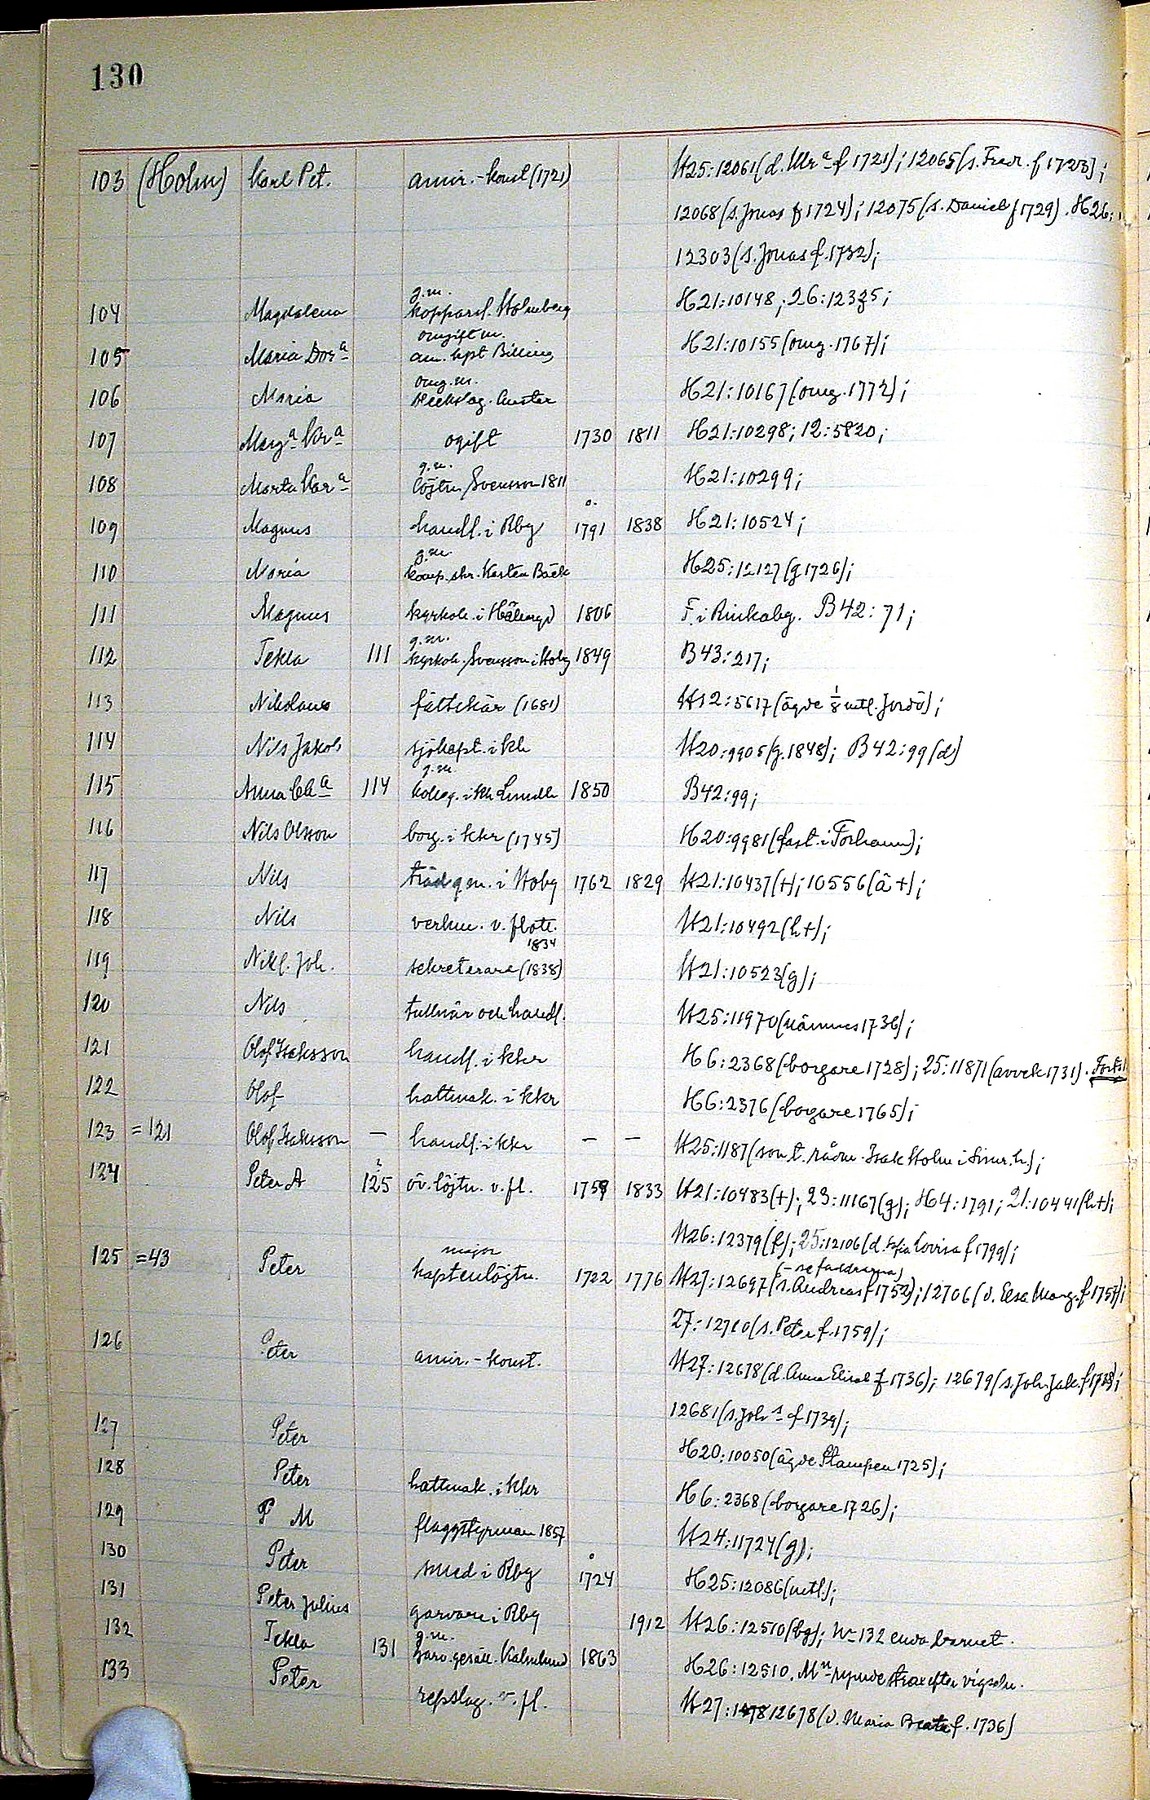 130
103 (Holm) Karl Pet. amir.-konst (1721) H25:12061 (d. Ulrª f 1721); 12065 (s. Fredr. f 1723);
12068 (s. Jonas f 1724); 12075 (s. Daniel f 1729). H26:
12303 (s. Jonas f. 1732);
104 Magdalena g.m. kopparsl. Holmberg H21:10148; 26:12335;
105 Maria Dorª omgift m. am. kpt Billing H21:10155 (omg. 1767);
106 Maria omg. m. H21:10167 (omg. 1772);
107 Margª Krª ogift 1730 1811 H21:10298; 12:5820;
108 Marta Karª g.m. löjtn. Svensson 1811 H21:10299;
109 Magnus handl. i Rby 1791 1838 H21:10524;
110 Maria g.m. komp.skr. Karsten Bäck H25:12127 (g 1726);
111 Magnus kyrkoh. i 1806 F. i Rinkaby. B42:71;
112 Tekla 111 g.m. kyrkoh. Svensson i Hoby 1849 B43:217;
113 Nikolaus fältskär (1681) H12:5617 (ägde 1/8 mtl. Jordö);
114 Nils Jakob sjökapt. i kh H20:9905 (g. 1848); B42:99 (d)
115 Anna Chª 114 g.m. kolleg. i kh Lundh 1850 B42:99;
116 Nils Olsson borg. i khr (1745) H20:9981 (fast. i Torhamn);
117 Nils trädg.m. i Hoby 1762 1829 H21:10437 (+); 10556 (ä+);
118 Nils verkm. v. flott. H21:10492 (h+);
119 Nikl. Joh. 1834 sekreterare (1838) H21:10523 (g);
120 Nils tullnär och handl. H25:11970 (nämnes 1736);
121 Olof Isaksson handl. i khr H6:2368 (borgare 1728); 25:11871 (avvek 1731).
122 Olof hattmak. i kkr H6:2376 (borgare 1765);
123 =121 Olof Isaksson – handl. i khr – – H25:1187 (son t. rådm. Isak Holm i Simr.h.);
124 Peter A 125 öv.löjtn. v. fl. 1759 1833 H21:10483 (+); 23:11167 (g); H4:1791; 21:10441 (h+);
H26:12379 (f); 25:12106 (d. Lovisa f 1799);
125 =43 Peter major kaptenlöjtn. 1722 1776 H27:12697 (s. Andreas f 1752); 12706 (d. Elsa Marg. f. 1757);
27:12710 (s. Peter f. 1759);
126 Peter amir.-konst. H27:12678 (d. Anna Elisab f 1736); 12679 (s. Joh. Jak. f 1738);
12681 (s. Johˢ f 1739);
127 Peter H20:10050 (ägde Stampen 1725);
128 Peter hattmak. i khr H6:2368 (borgare 1726);
129 P M flaggstyrman 1857 H24:11724 (g);
130 Peter smed i Rby 1724 H25:12086 (mtl.);
131 Peter Julius garvare i Rby 1912 H26:12510 (bg); Nr 132 enda barnet.
132 Tekla 131 g.m. garv.gesäll. 1863 H26:12510. Mn rymde strax efter vigseln.
133 Peter repslag. v. fl. H27: 12678 (d. Maria Beata f. 1736)